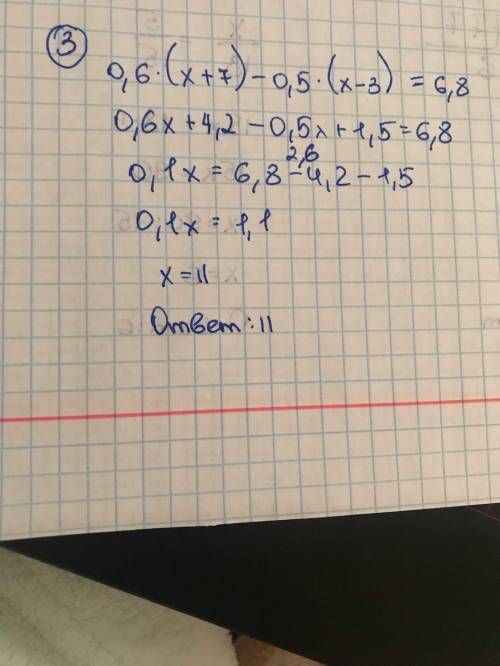 3
0,6·(x+7)-0,5·(x-3)=6,8
0,6x+4,2-0,5x+1,5=6,8
2,6
0,1x=6,8-4,2-1,5
0,1x=1,1
x=11
Ответ: 11